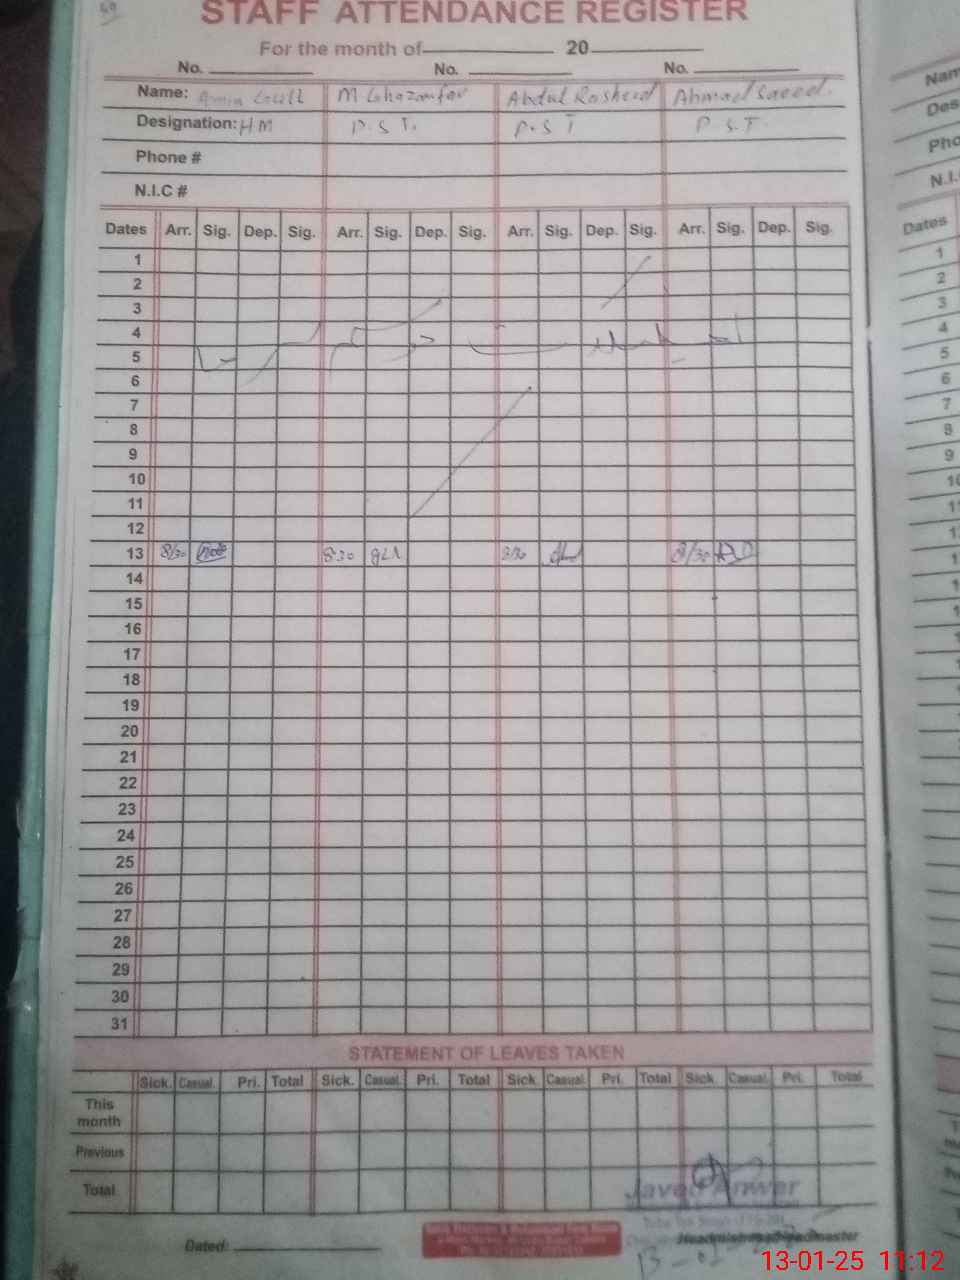 STAFF ATTENDANCE REGISTER
For the month of 20
No. No. No.
Name: Amin Gull M Ghazanfar Abdul Rasheed Ahmad Saeed.
Designation: HM P.S.T. P.S T P.S.T.
Phone #
N.I.C #
Dates Arr. Sig. Dep. Sig. Arr. Sig. Dep. Sig. Arr. Sig. Dep. Sig. Arr. Sig. Dep. Sig.
1
2
3
4
5
6
7
8
9
10
11
12
13 8/30 8:30 8/30 8/30
14
15
16
17
18
19
20
21
22
23
24
25
26
27
28
29
30
31
STATEMENT OF LEAVES TAKEN
Sick. Casual. Pri. Total Sick. Casual. Pri. Total Sick. Casual. Pri. Total Sick. Casual. Pri. Total
This month
Previous
Total
Javed Anwar
Dated: Headmaster
13-01-25 11:12
Nam
Des
Pho
N.I.
Dates
1
2
3
4
5
6
7
8
9